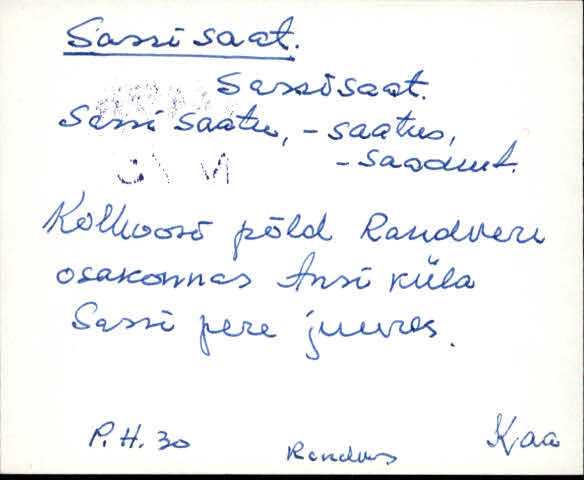 Sassi saat.
Sassisaat.
Sassi saatu, -saatus,
-saadmt.
Kolhoosi põld Randvere
osakonnas Ansi küla
Sassi pere juures.
P.H. 30
Randvs
Kaa